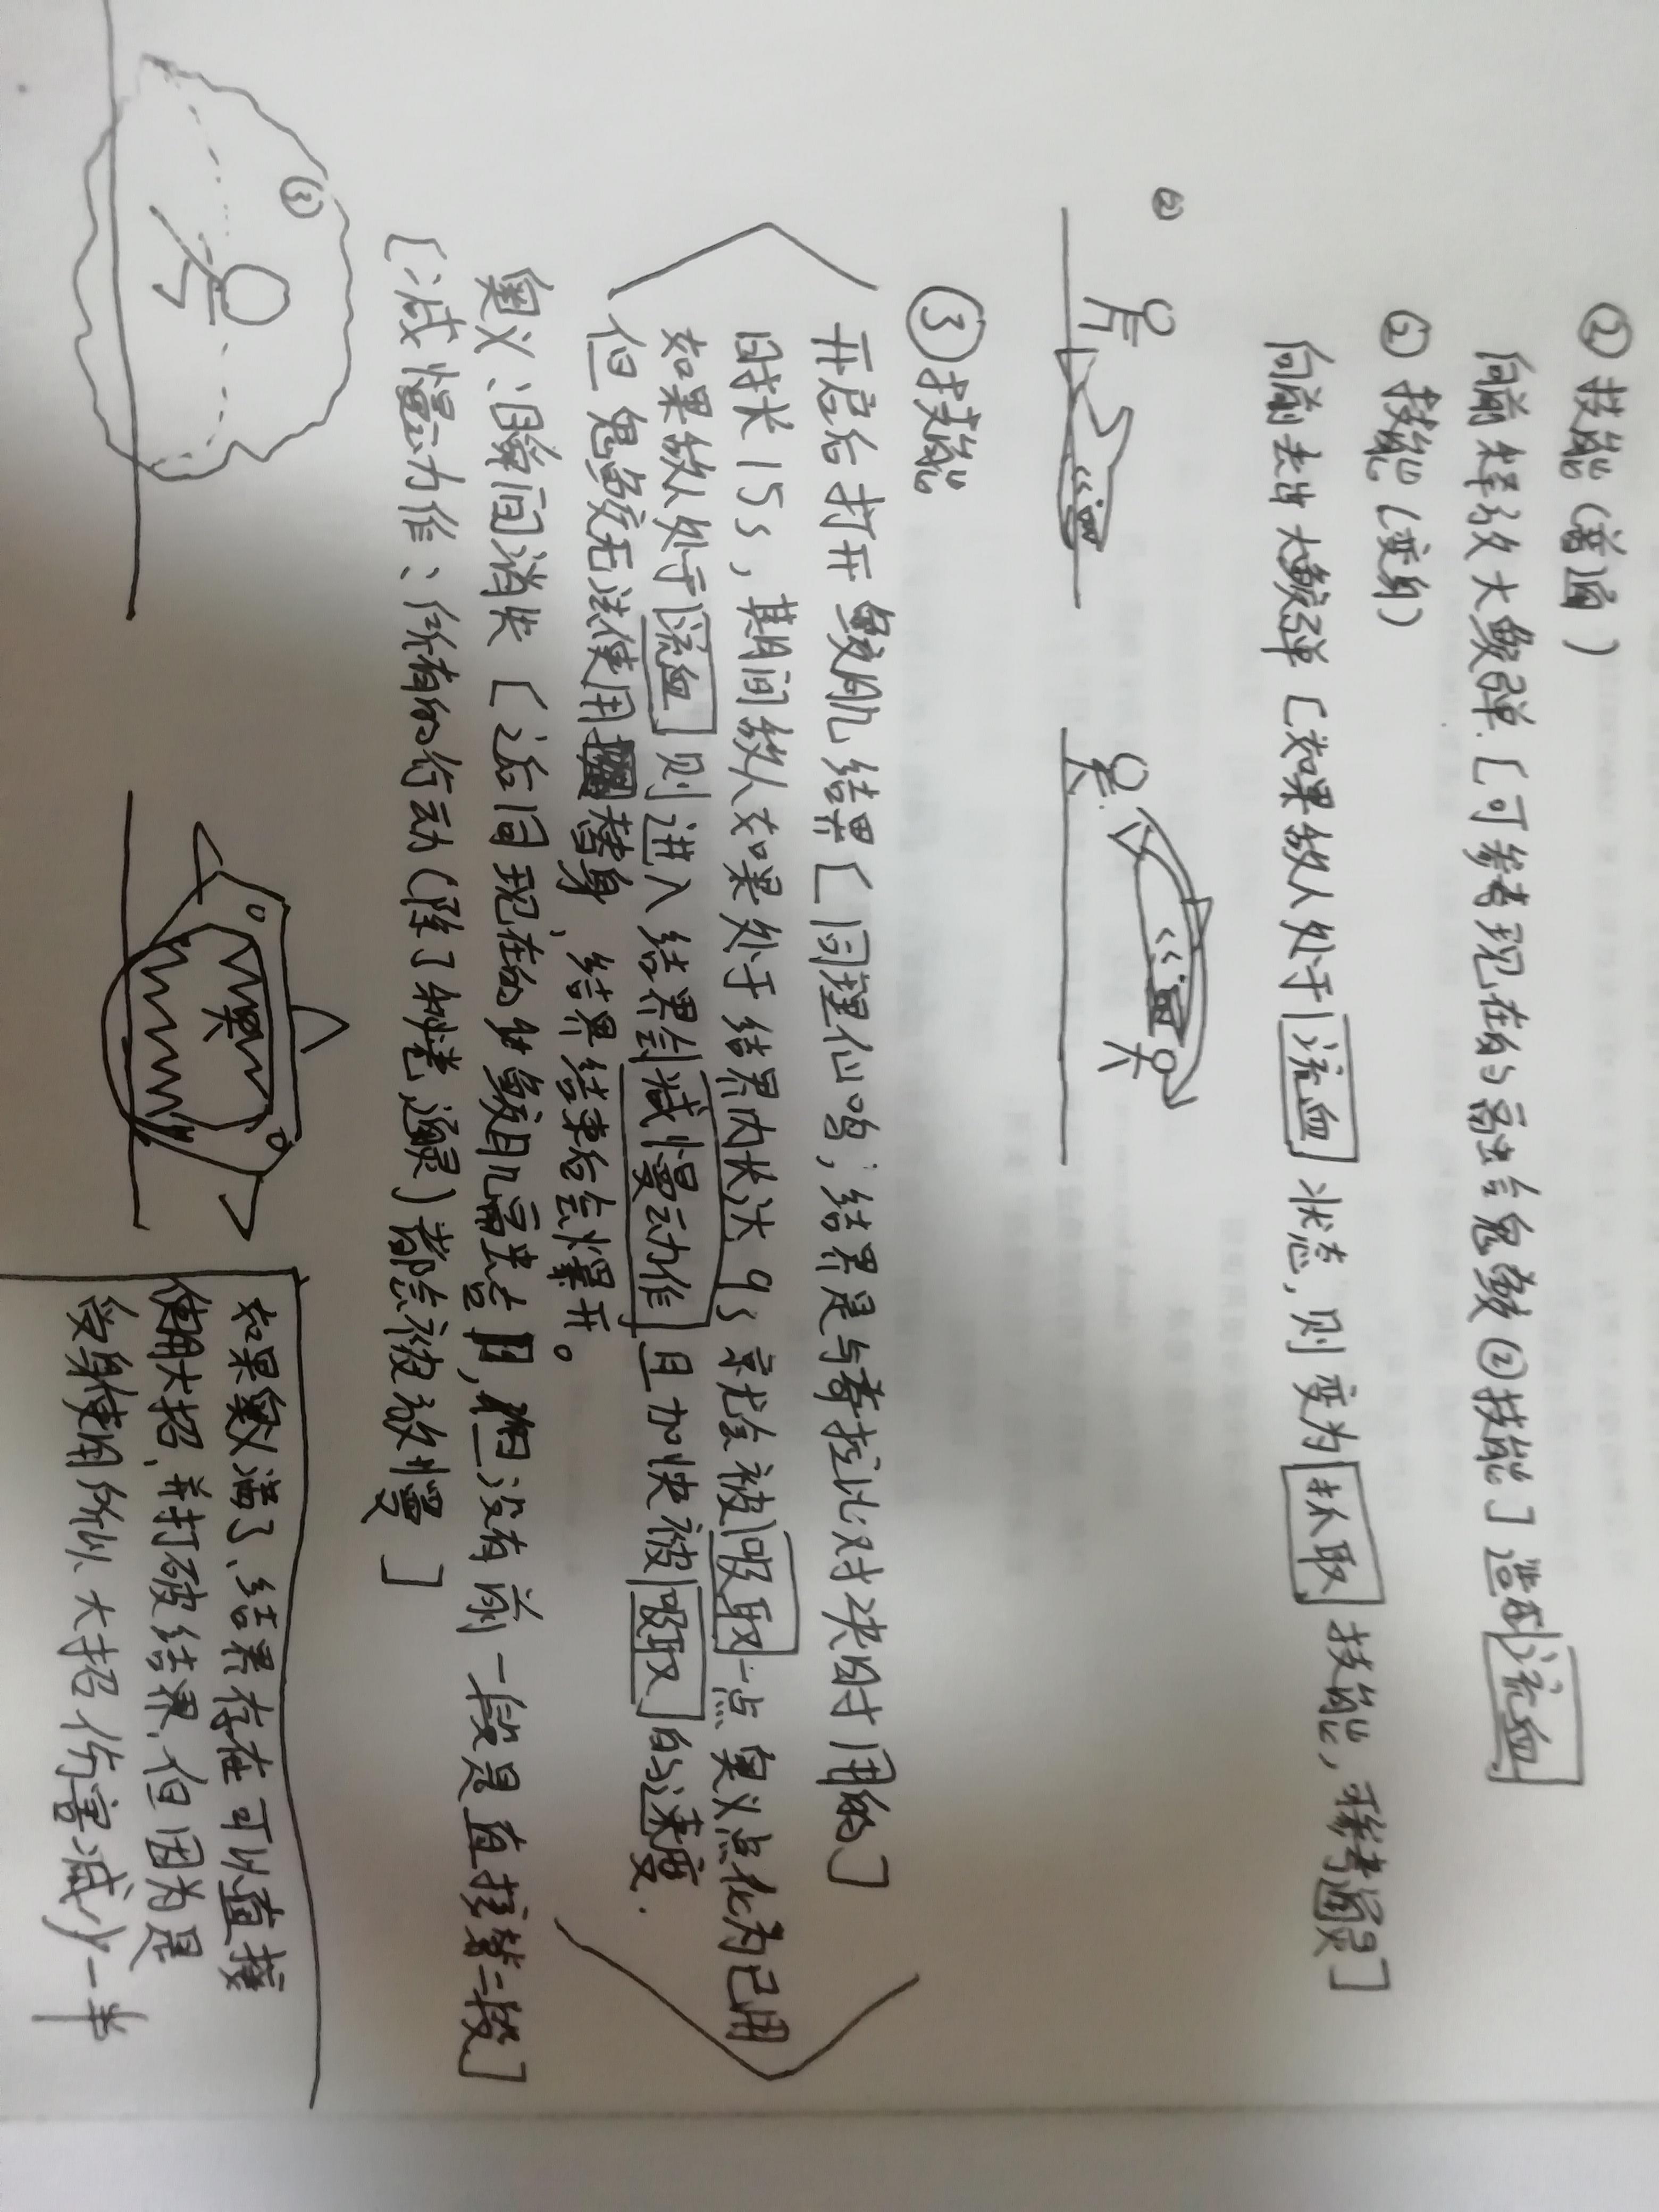 ②技能(普通)
向前释放大鲛弹〔可参考现在的鬼鲛②技能〕造成流血
②技能(变身)
向前丢出大鲛弹〔如果敌人处于流血状态,则变为抓取技能,可参考通灵〕
②
③技能
开启后打开鲛肌结界〔同理仙鸣,结界是与奇拉比对决时用的〕
时长15s,期间敌人如果处于结界内长达9s就会被吸取一点奥义点化为己用
如果敌人处于流血则进入结界会减慢动作且加快被吸取的速度.
但鬼鲛无法使用替身,结界结束后会爆开。
奥义:瞬间消失〔近同现在的鲛肌,但没有前一段是直接第二段〕
〔减慢动作:所有的行动(除了秘卷通灵)都会被放慢〕
③
如果奥义满了、结界存在可以直接
使用大招,并打破结界,但因为是
变身使用所以大招伤害减少一半